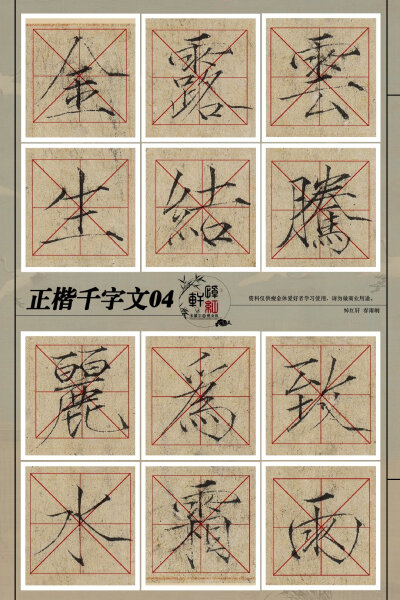 雲騰致雨
露結為霜
金生麗水
正楷千字文04
资料仅供瘦金体爱好者学习使用，请勿做商业用途。